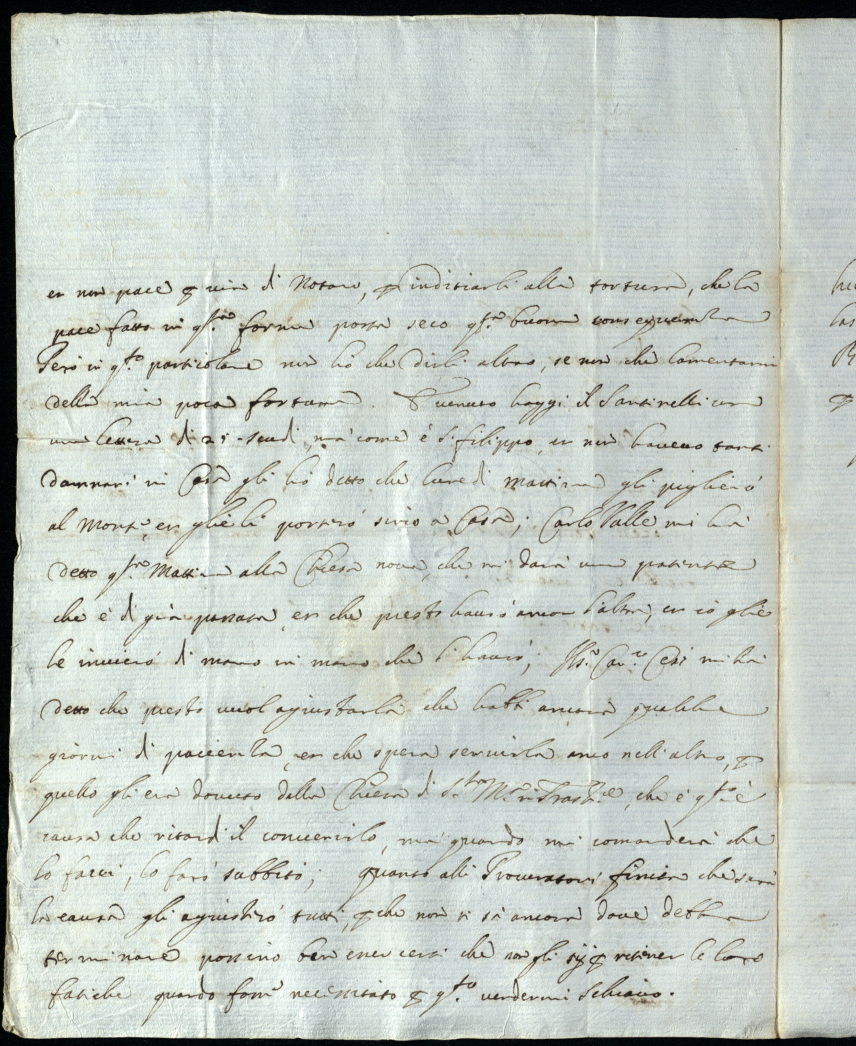 et non pace p via di Notaro, p inditiarli alla tortura, che la
pace fatta in q.sta forma porta seco q.sta buona consequenza
Però in q.to particolare non hò che dirli altro, se non che lamentarmi
della mia poca fortuna. È venuto hoggi il Santinelli con
una lettera di 25 scudi, mà come è S. Filippo, et non havevo tanti
dannari in Casa gli hò detto che lunedi mattina gli piglierò
al Monte, et glie li porterò sino a Casa; Carlo Valle mi hà
detto q.sta Mattina alla Chiesa nova, che mi darà una patente
che è di già passata, et che presto haverò ancor l'altra, et io glie
le invierò di mano in mano che l'haverò; Ill.mo Cav.re Cesi mi hà
detto che presto vuol agiustarla che habbi ancora qualche
giorni di pacienza, et che spera servirla anco nell'altro, p
quello gli era dovuto dalla Chiesa di S.ta M.a in Trast.re, che è q.sta è
causa che ritardi il convenirlo, mà quando mi comanderà che
lo facci, lo farò subbito; quanto alli Procuratori finita che sarà
la causa gli agiustirò tutti, p che non si sà ancora dove debba
terminare possino ben esser certi che non gli sij p ritener le loro
fatiche quando foss necessitato p q.to vendermi Schiavo.